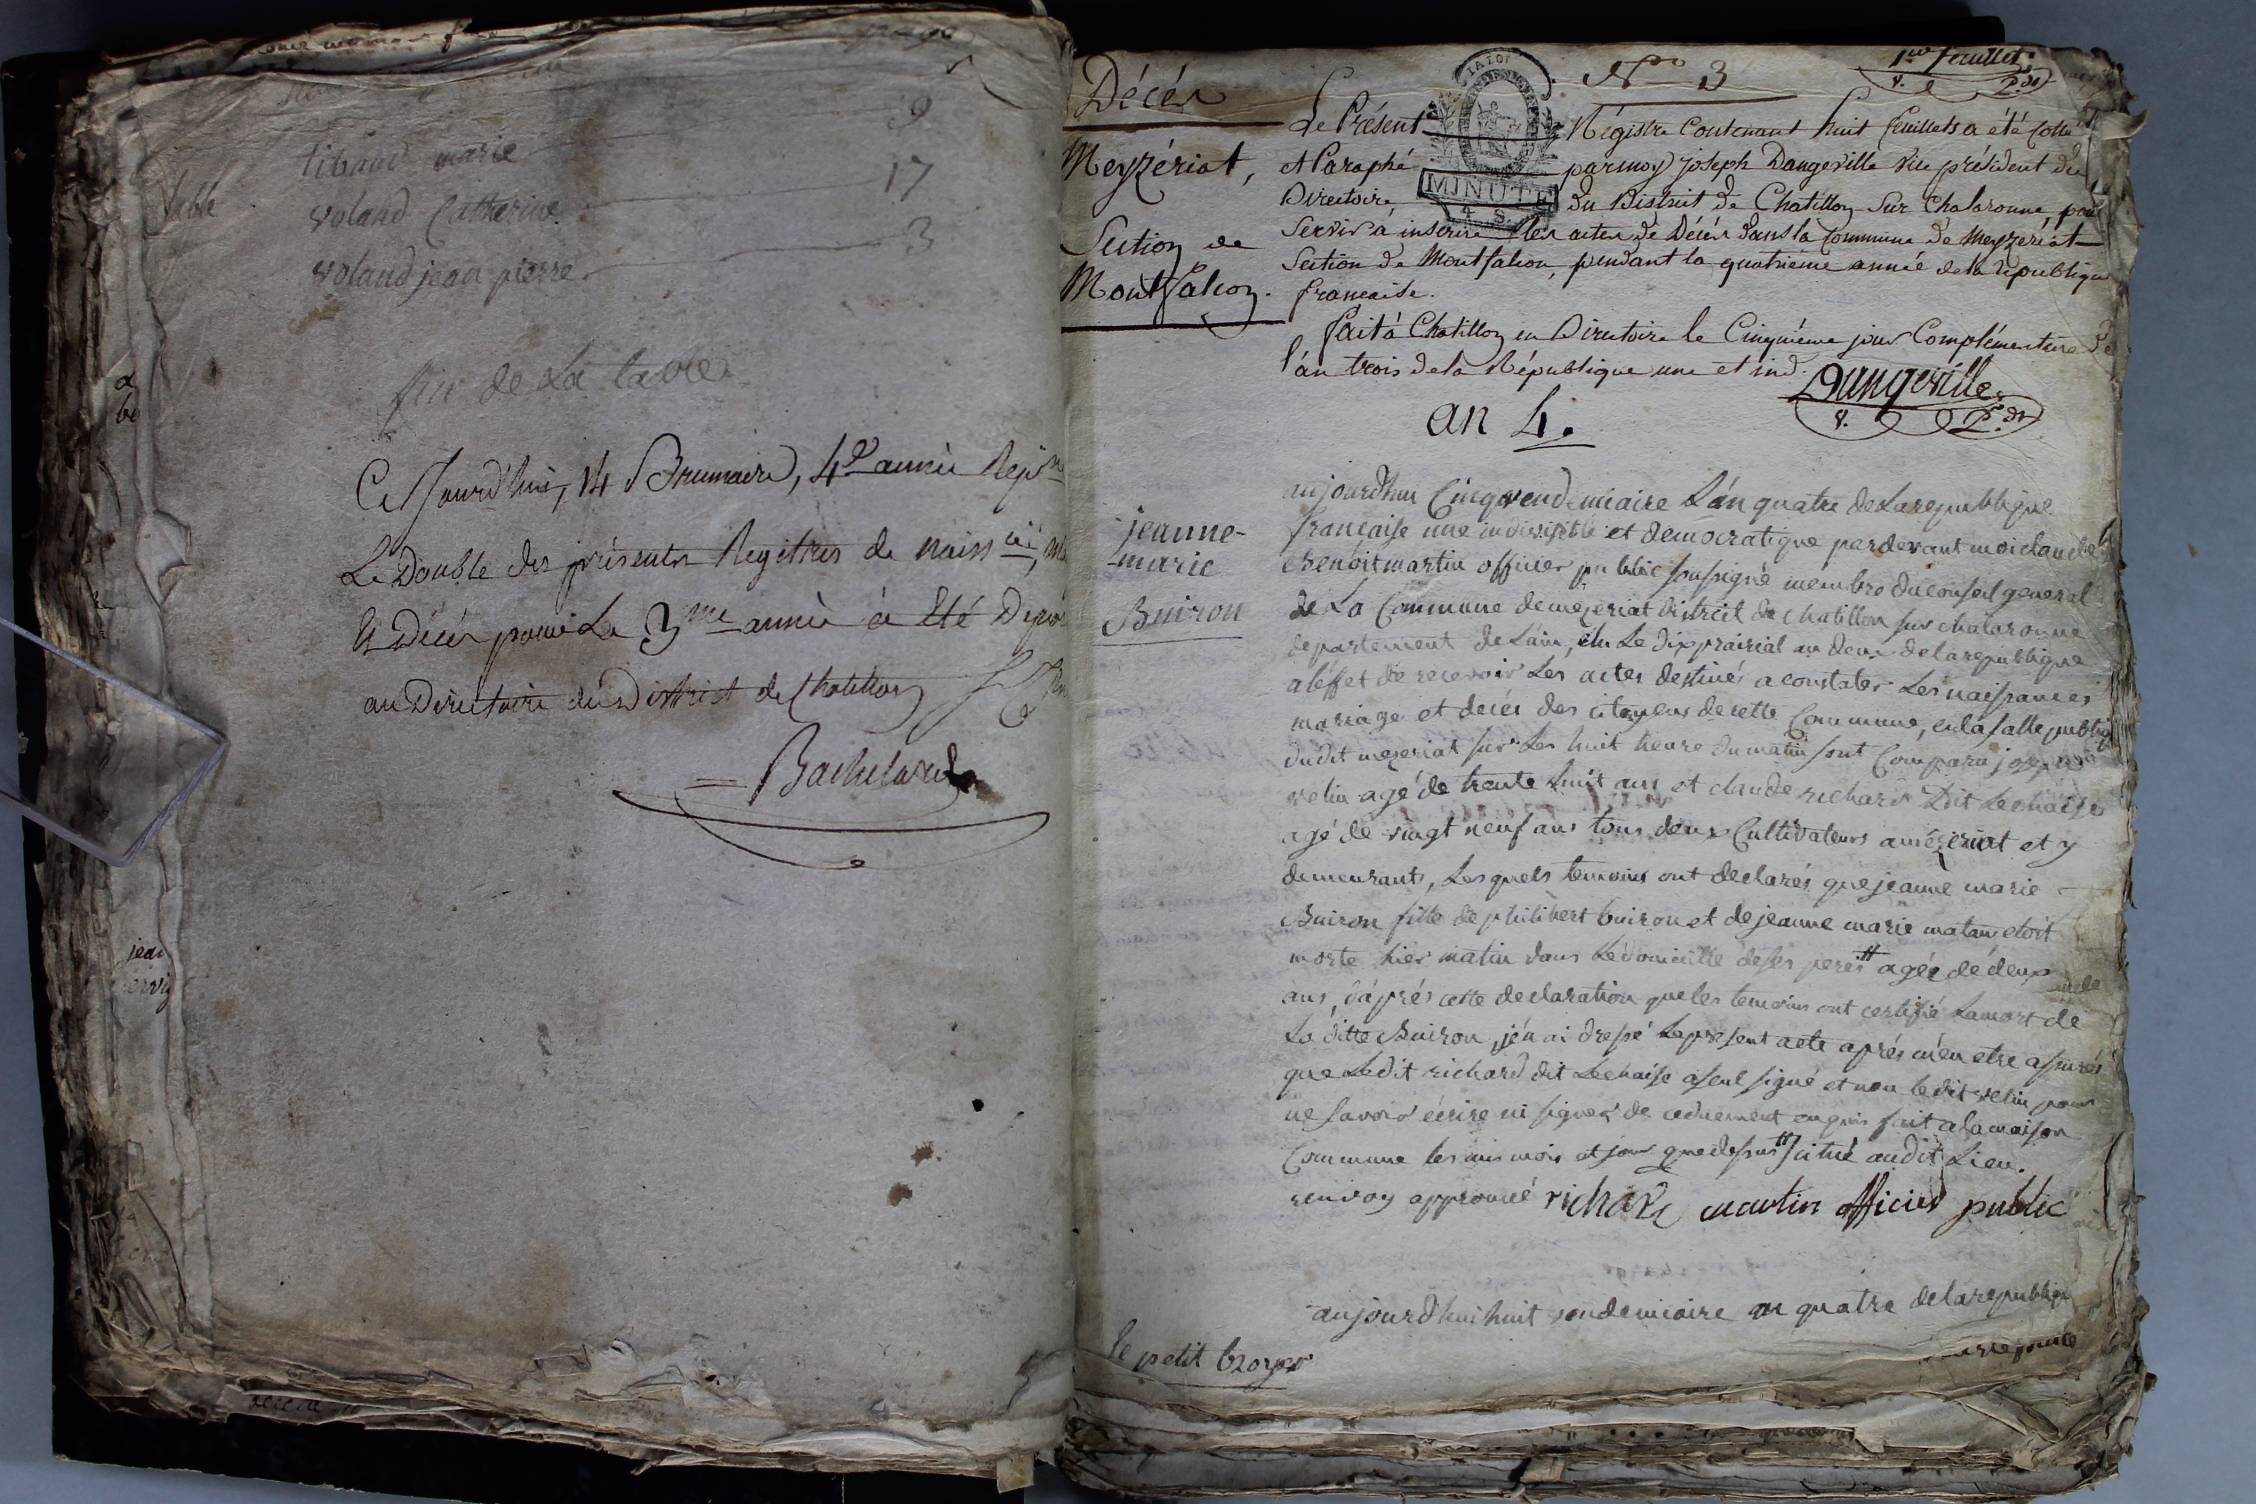 page
9
tibaud marie 17
voland Catherine 3
voland jean pierre
fin de La table
Ce Jourd'hui, 14 Brumaire, 4e année Repne
Le Double des présents Registres de naissces,
Et Décès pour La 3me année à Eté Dépo
au Directoire du District de Chatillon
Bachelard
table
jean
Décés
Meyzériat,
Section de
Montfalcon.
N° 3
1er feuillet.
v. P.dt
Le Présent Régistre Contenant huit feuillets a été Cotté
et Paraphé par moy joseph Dangeville vice président du
MINUTE
4 S.
Directoire du District de Chatillon Sur Chalaronne, pour
Servir à inscrire les actes de Décés dans la Commune de Meyzériat
Section de Montfalcon, pendant la quatrieme année de la République
francaise.
fait à Chatillon en Directoire le Cinquième jour Complémentaire de
l'an trois de la République une et ind.
Dangeville
v. P.dt
an 4.
jeanne-
marie
Buiron
aujourd'hui Cinq vendemiaire L'an quatre de La republique
française une indivisible et democratique pardevant moi claude
Benoit martin officier public soussigné membre du conseil general
de La Commune de mezeriat district de chatillon sur chalaronne
departement de L'ain, élu Le dix prairial an deux de la republique
a l'éffet de recevoir Les actes destinés a constater Les naissances
mariage et decés des citoyens de cette Commune, en la salle publiq
dudit mezeriat sur Les huit heure du matin sont Comparu joseph
velin agé de trente huit ans et claude richard Dit Lechaise
agé de vingt neuf ans tous deux Cultivateurs a mézeriat et y
demeurants, Lesquels temoins ont declarés que jeanne marie
Buiron fille de philibert buiron et de jeanne marie matan etoit
morte hier matin dans Le domicille de ses peres # agée de deux
ans, d'aprés cette declaration que les temoins ont certifié La mort de
La ditte Buiron, j'én ai dressé Le present acte aprés m'en etre assurés
que Ledit richard dit Lechaise a seul signé et non le dit velin pour
ne savoir écrire ni signer de ce duement enquis fait a la maison
Commune les mis mois et jour que dessus # scitué audit Lieu.
renvoy approuvé richard martin officier public
aujourd'hui huit vendemiaire an quatre de la republiqu
Le petit broyer